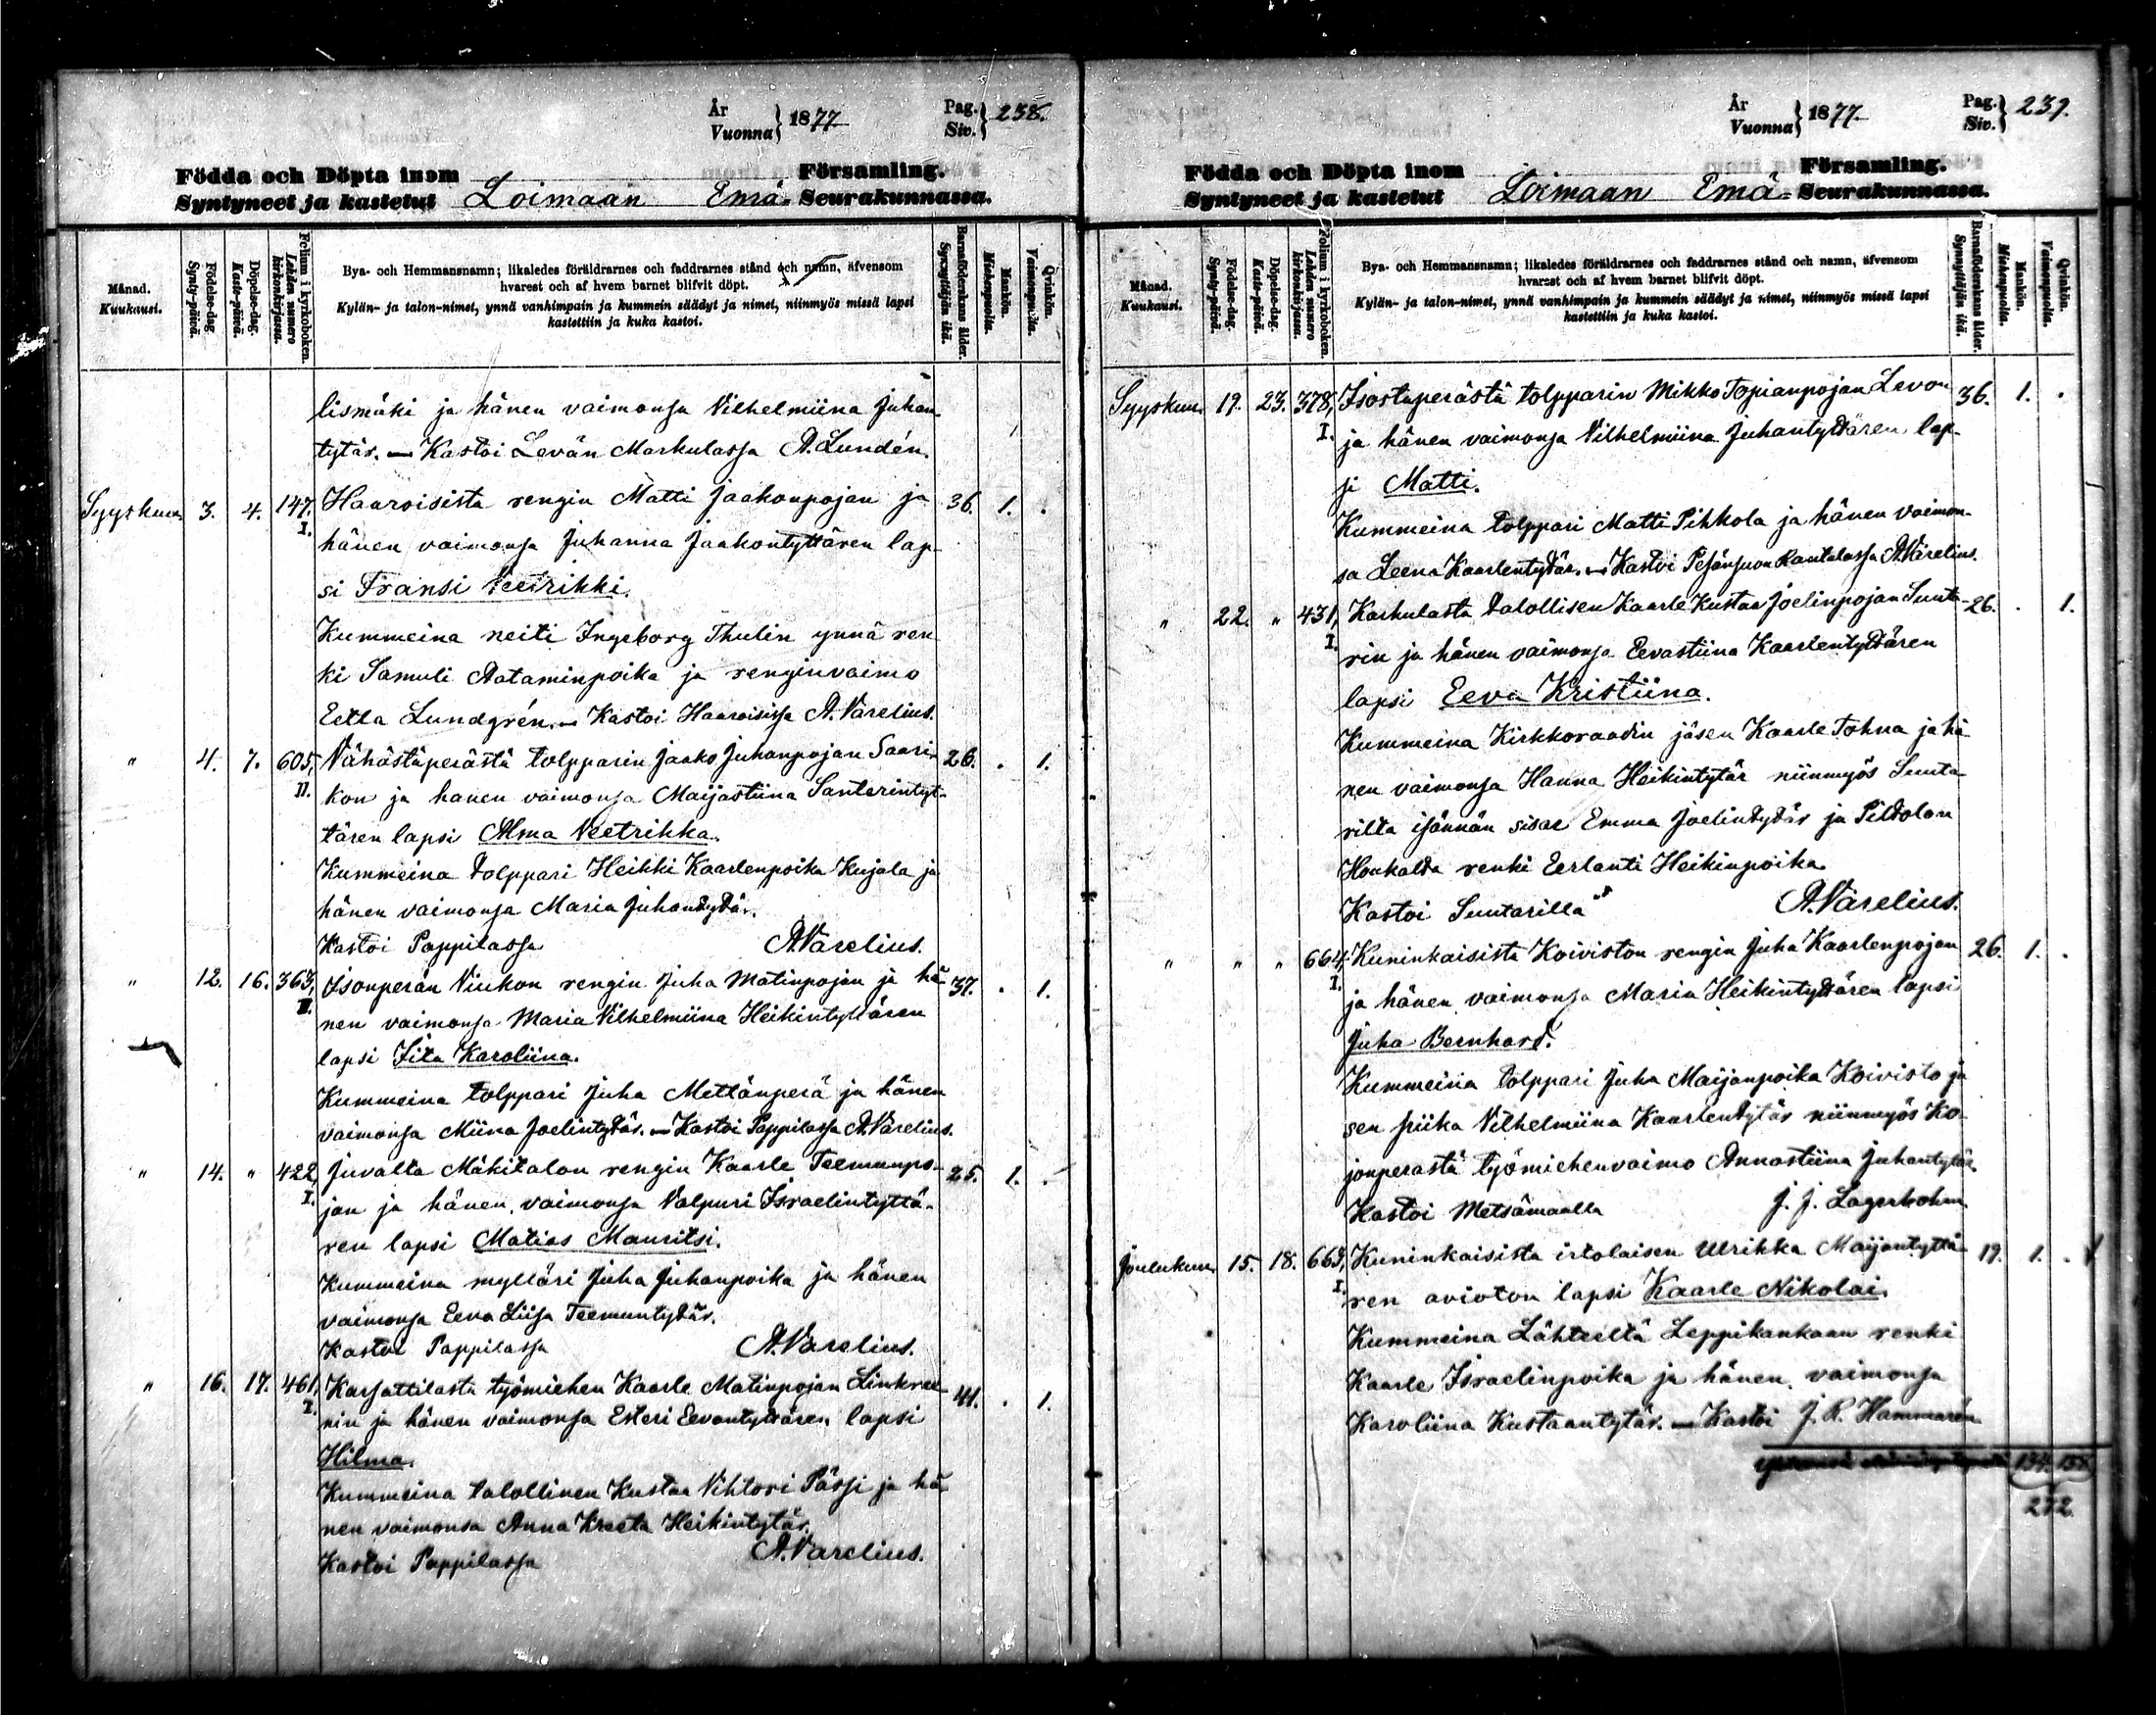 År
Vuonna } 1877
Pag.
Siv. } 238.
Födda och Döpta inom Församling.
Syntyneet ja kastetut Loimaan Emä- Seurakunnassa.
Månad.
Kuukausi.
Födelse-dag.
Synty-päivä.
Döpelse-dag.
Kaste-päivä.
Folium i kyrkoboken.
Lehden numero kirkonkirjassa.
Bya- och Hemmansnamn; likaledes föräldrarnes och faddrarnes stånd och namn, äfvensom
hvarest och af hvem barnet blifvit döpt.
Kylän- ja talon-nimet, ynnä vanhimpain ja kummein säädyt ja nimet, niinmyös missä lapsi
kastettiin ja kuka kastoi.
Barnaföderskans ålder.
Synnyttäjän ikä.
Mankön.
Miehenpuolia.
Qvinkön.
Vaimonpuolia.
lismäki ja hänen vaimonsa Vilhelmiina Juhan
tytär. — Kastoi Levän Markulassa A. Lundén.
Syyskuu 3. 4. 147, I. Haaroisista rengin Matti Jaakonpojan ja 36. 1. .
hänen vaimonsa Juhanna Jaakontyttären lap-
si Fransi Veetrikki.
Kummeina neiti Ingeborg Thulin ynnä ren
ki Samuli Aataminpoika ja renginvaimo
Eetla Lundgrén. — Kastoi Haaroisissa A. Varelius.
" 4. 7. 605, II. Vähästäperästä tolpparin Jaako Juhanpojan Saari- 26. . 1.
kon ja hänen vaimonsa Maijastiina Santerintyt-
tären lapsi Alma Veetrikka.
Kummeina tolppari Heikki Kaarlenpoika Kujala ja
hänen vaimonsa Maria Juhantytär.
Kastoi Pappilassa A. Varelius.
" 12. 16. 363, II. Isonperän Viukon rengin Juha Matinpojan ja hä- 37. . 1.
nen vaimonsa Maria Vilhelmiina Heikintyttären
lapsi Iita Karoliina.
Kummeina tolppari Juha Mettänperä ja hänen
vaimonsa Miina Joelintytär. — Kastoi Pappilassa A. Varelius.
" 14. " 422, I. Juvalta Mäkitalon rengin Kaarle Teemunpo- 25. 1. .
jan ja hänen vaimonsa Valpuri Israelintyttä-
ren lapsi Matias Mauritsi.
Kummeina mylläri Juha Juhanpoika ja hänen
vaimonsa Eeva Liisa Teemuntytär.
Kastoi Pappilassa A. Varelius.
" 16. 17. 461, I. Karsattilasta työmiehen Kaarle Matinpojan 41. . 1.
nin ja hänen vaimonsa Esteri Eevantyttären lapsi
Hilma.
Kummeina talollinen Kustaa Vihtori Pässi ja hä
nen vaimonsa Anna Kreeta Heikintytär.
Kastoi Pappilassa A. Varelius.
År
Vuonna } 1877.
Pag.
Siv. } 239.
Födda och Döpta inom Församling.
Syntyneet ja kastetut Loimaan Emä- Seurakunnassa.
Månad.
Kuukausi.
Födelse-dag.
Synty-päivä.
Döpelse-dag.
Kaste-päivä.
Folium i kyrkoboken.
Lehden numero kirkonkirjassa.
Bya- och Hemmansnamn; likaledes föräldrarnes och faddrarnes stånd och namn, äfvensom
hvarest och af hvem barnet blifvit döpt.
Kylän- ja talon-nimet, ynnä vanhimpain ja kummein säädyt ja nimet, niinmyös missä lapsi
kastettiin ja kuka kastoi.
Barnaföderskans ålder.
Synnyttäjän ikä.
Mankön.
Miehenpuolia.
Qvinkön.
Vaimonpuolia.
Syyskuu 19. 23. 378, I. Isostaperästä tolpparin Mikko Topianpojan Levon 36. 1. .
ja hänen vaimonsa Vilhelmiina Juhantyttären lap-
si Matti.
Kummeina tolppari Matti Pihkola ja hänen vaimon-
sa Leena Kaarlentytär. — Kastoi Pesänsuon Rautalassa A. Varelius.
" 22. " 431, I. Karhulasta talollisen Kaarle Kustaa Joelinpojan Suuta- 26. . 1.
rin ja hänen vaimonsa Eevastiina Kaarlentyttären
lapsi Eeva Kristiina.
Kummeina Kirkkoraadin jäsen Kaarle Tohna ja hä
nen vaimonsa Hanna Heikintytär niinmyös Suuta
rilta isännän sisar Emma Joelintytär ja Piltolan
Honkalda renki Eerlanti Heikinpoika
Kastoi Suutarilla A. Varelius.
" " " 664, I. Kuninkaisista Koiviston rengin Juha Kaarlenpojan 26. 1. .
ja hänen vaimonsa Maria Heikintyttären lapsi
Juha Bernhard.
Kummeina tolppari Juha Maijanpoika Koivisto ja
sen piika Vilhelmiina Kaarlentytär niinmyös Ko-
jonperästä työmiehenvaimo Annastiina Juhantytär.
Kastoi Metsämaalla J. J. Lagerbohm.
Joulukuu 15. 18. 669, I. Kuninkaisista irtolaisen Ulrikka Maijantyttä- 19. 1. .
ren avioton lapsi Kaarle Nikolai.
Kummeina Lähteeltä Leppikankaan renki
Kaarle Israelinpoika ja hänen vaimonsa
Karoliina Kustaantytär. — Kastoi J. R. Hammarén
134. 138.
272.